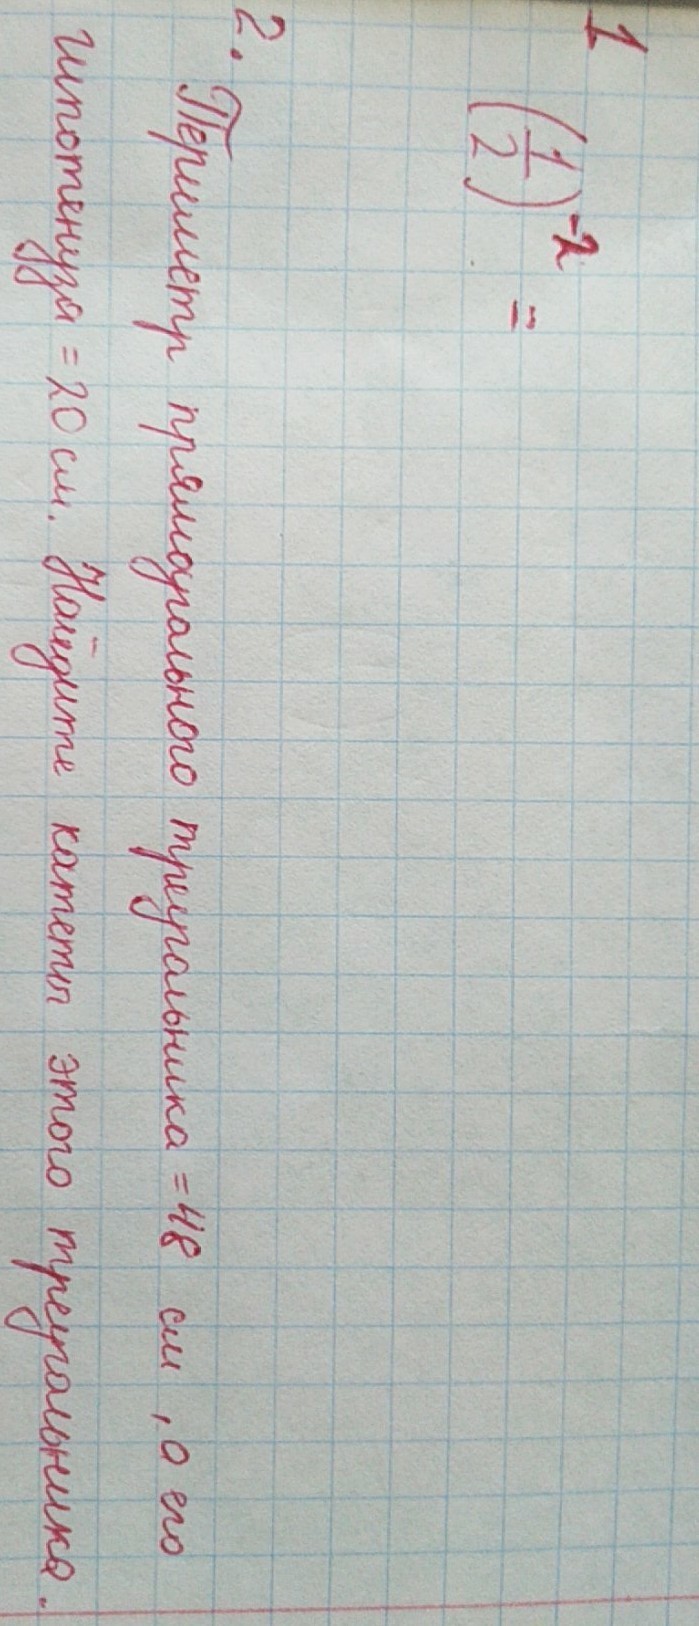 1
(1/2)^-2 =
2. Периметр прямоугольного треугольника = 48 см, а его
гипотенуза = 20 см. Найдите катеты этого треугольника.